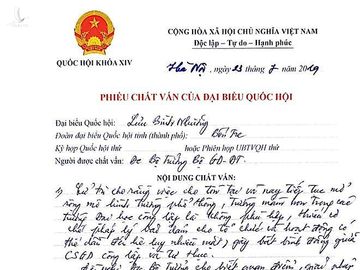 CỘNG HÒA XÃ HỘI CHỦ NGHĨA VIỆT NAM
Độc lập - Tự do - Hạnh phúc
QUỐC HỘI KHÓA XIV
Hà Nội, ngày 23 tháng 7 năm 2019
PHIẾU CHẤT VẤN CỦA ĐẠI BIỂU QUỐC HỘI
Đại biểu Quốc hội: Lưu Bình Nhưỡng
Đoàn đại biểu Quốc hội tỉnh (thành phố): Bến Tre
Kỳ họp Quốc hội thứ hoặc Phiên họp UBTVQH thứ
Người được chất vấn: Bộ trưởng Bộ GD-ĐT
NỘI DUNG CHẤT VẤN:
1) Cử tri cho rằng việc cho tồn tại và nay tiếp tục mở
rộng mô hình trường phổ thông, trường mầm non trong các
trường Đại học công lập là không phù hợp, thiếu cơ
chế pháp lý bảo đảm cho tổ chức và hoạt động có
thể dẫn đến hệ lụy nhiều mặt, gây bất bình đẳng giữa
CSGD công lập và tư thục.